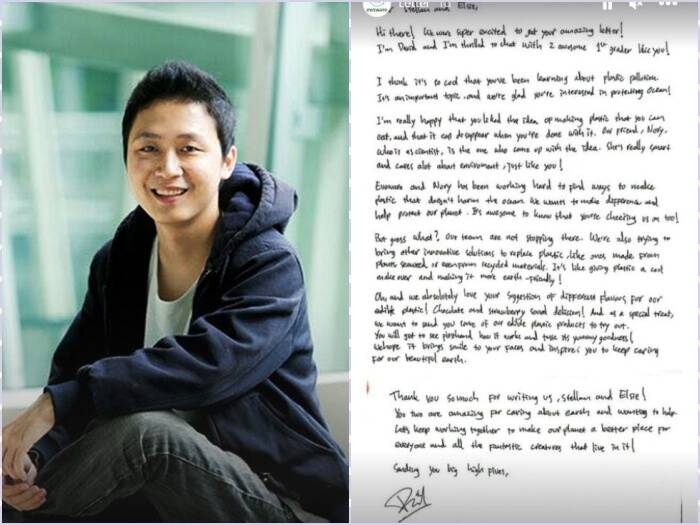 Stellan and Elsie,
Hi there! We were super excited to get your amazing letter!
I'm David and I'm thrilled to chat with 2 awesome 1st grader like you!
I think it's so cool that you've been learning about plastic pollution.
It's an important topic, and we're glad you're interested in protecting Ocean!
I'm really happy that you liked the idea of making plastic that you can
eat, and that it can disappear when you're done with it. Our friend, Nory,
who is a scientist, is the one who came up with the idea. She's really smart
and cares alot about enviroment, just like you!
Evoware and Nory has been working hard to find ways to make
plastic that doesn't harm the ocean. We wants to make difference and
help protect our planet. It's awesome to know that you're cheering us on too!
But guess what? Our team are not stopping there. We're also trying to
bring other innovative solutions to replace plastic, like ones made from
plants seaweed, or even from recycled materials. It's like giving plastic a cool
make over and making it more earth-friendly!
Oh, and we absolutely love your suggestion of different flavors for our
edible plastic! Chocolate and strawberry sound delicious! And as a special treat,
we want to send you some of our edible plastic products to try out.
You will get to see firsthand how it works and taste its yummy goodness!
We hope it brings smile to your faces and inspires you to keep caring
for our beautiful earth.
Thank you so much for writing us, Stellan and Elsie!
You two are amazing for caring about earth and wanting to help.
Lets keep working together to make our planet a better place for
everyone and all the fantastic creatures that live in it!
Sending you big high fives,